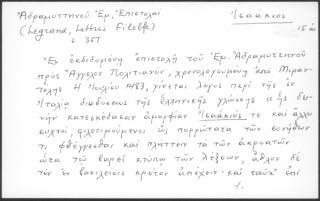 Ἀδραμυττηνοῦ Ἐμ, Ἐπιστολαὶ
Ἰσαάκιος
(Legrand, Lettres Filelfe)
15 αἰ
σ. 351
Ἐν ἐκδιδομένῃ ἐπιστολῇ τοῦ Ἐμ. Ἀδραμυττηνοῦ
πρὸς Ἄγγελον Πολιτιανόν, χρονολογουμένῃ ἀπὸ Μιραν-
δόλης 4 Ἰουλίου 1483, γίνεται λόγος περὶ τῆς ἐν
Ἰταλίᾳ διαδόσεως τῆς ἑλληνικῆς γλώσσης "ἧς δει-
νὴν κατεσκέδασαν ἀμορφίαν Ἰσαάκιος τε καὶ ἄλλοι
συχνοί, φιλοτιμούμενοι ὡς πορρώτατα τῶν συνήθων
τι φθέγγεσθαι καὶ πλήττειν τὰ τῶν ἀκροατῶν
ὦτα τῷ βαρεῖ κτύπῳ τῶν λέξεων, ἆθλον δὲ
τὸν ἐν βασιλείοις κρότον ἀπέχον. καὶ ταῦτ' ἐπὶ
./.